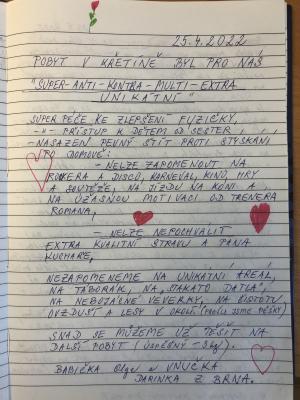 25.4.2022
POBYT V KŘETÍNĚ BYL PRO NÁS
"SUPER-ANTI-KONTRA-MULTI-EXTRA
UNIKÁTNÍ"
SUPER PÉČE KE ZLEPŠENÍ FYZIČKY,
-"- PŘÍSTUP K DĚTEM OD SESTER,
- NASAZEN PEVNÝ ŠTÍT PROTI STÝSKÁNÍ
PO DOMOVĚ:
- NELZE ZAPOMENOUT NA
A DISCO, KARNEVAL, KINO, HRY
A SOUTĚŽE, NA JÍZDU NA KONI A
NA ÚŽASNOU MOTIVACI OD TRENÉRA
ROMANA,
- NELZE NEPOCHVÁLIT
EXTRA KVALITNÍ STRAVU A PANA
KUCHAŘE,
NEZAPOMENEME NA UNIKÁTNÍ AREÁL,
NA TÁBORÁK, NA „STAKATO DATLA",
NA NEBOJÁCNÉ VEVERKY, NA ČISTOTU
OVZDUŠÍ A LESY V OKOLÍ (prošli jsme pěšky)
SNAD SE MŮŽEME UŽ TĚŠIT NA
DALŠÍ POBYT (úspěšný - 3kg).
BABIČKA Olga a VNUČKA
DARINKA Z BRNA.